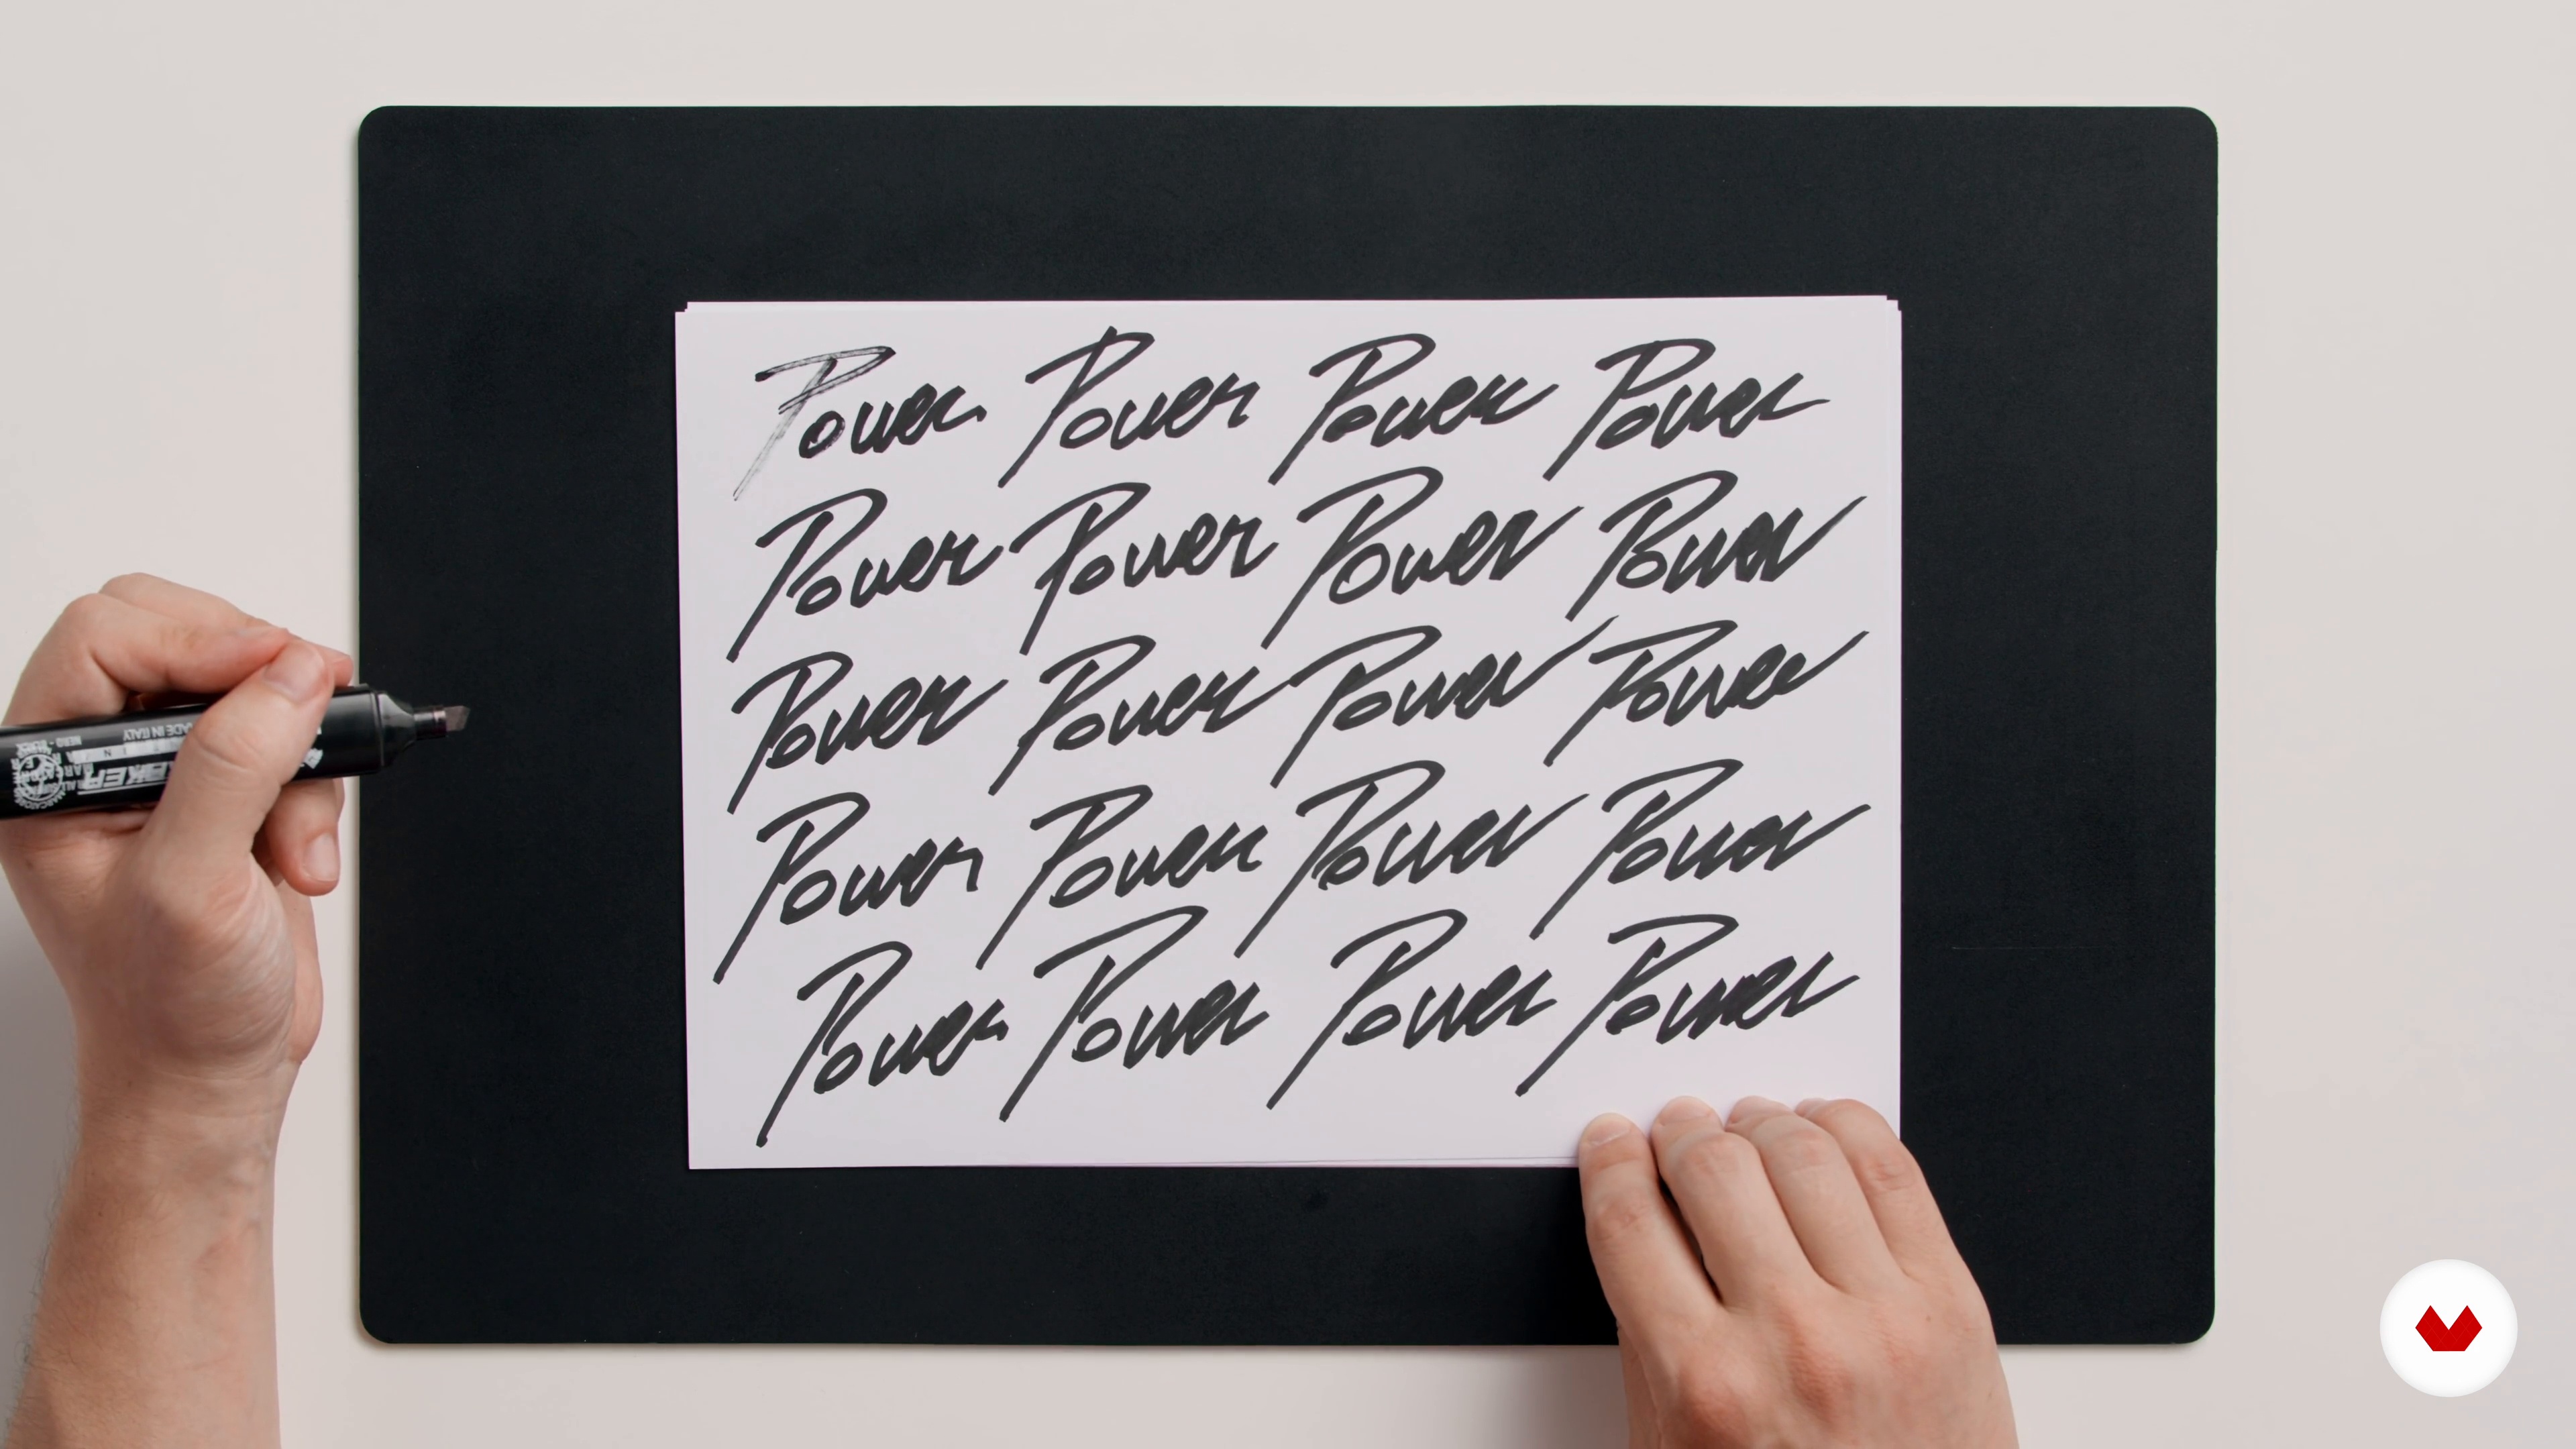 Power Power Power Power
Power Power Power Power
Power Power Power Power
Power Power Power Power
Power Power Power Power
MADE IN ITALY
NERO